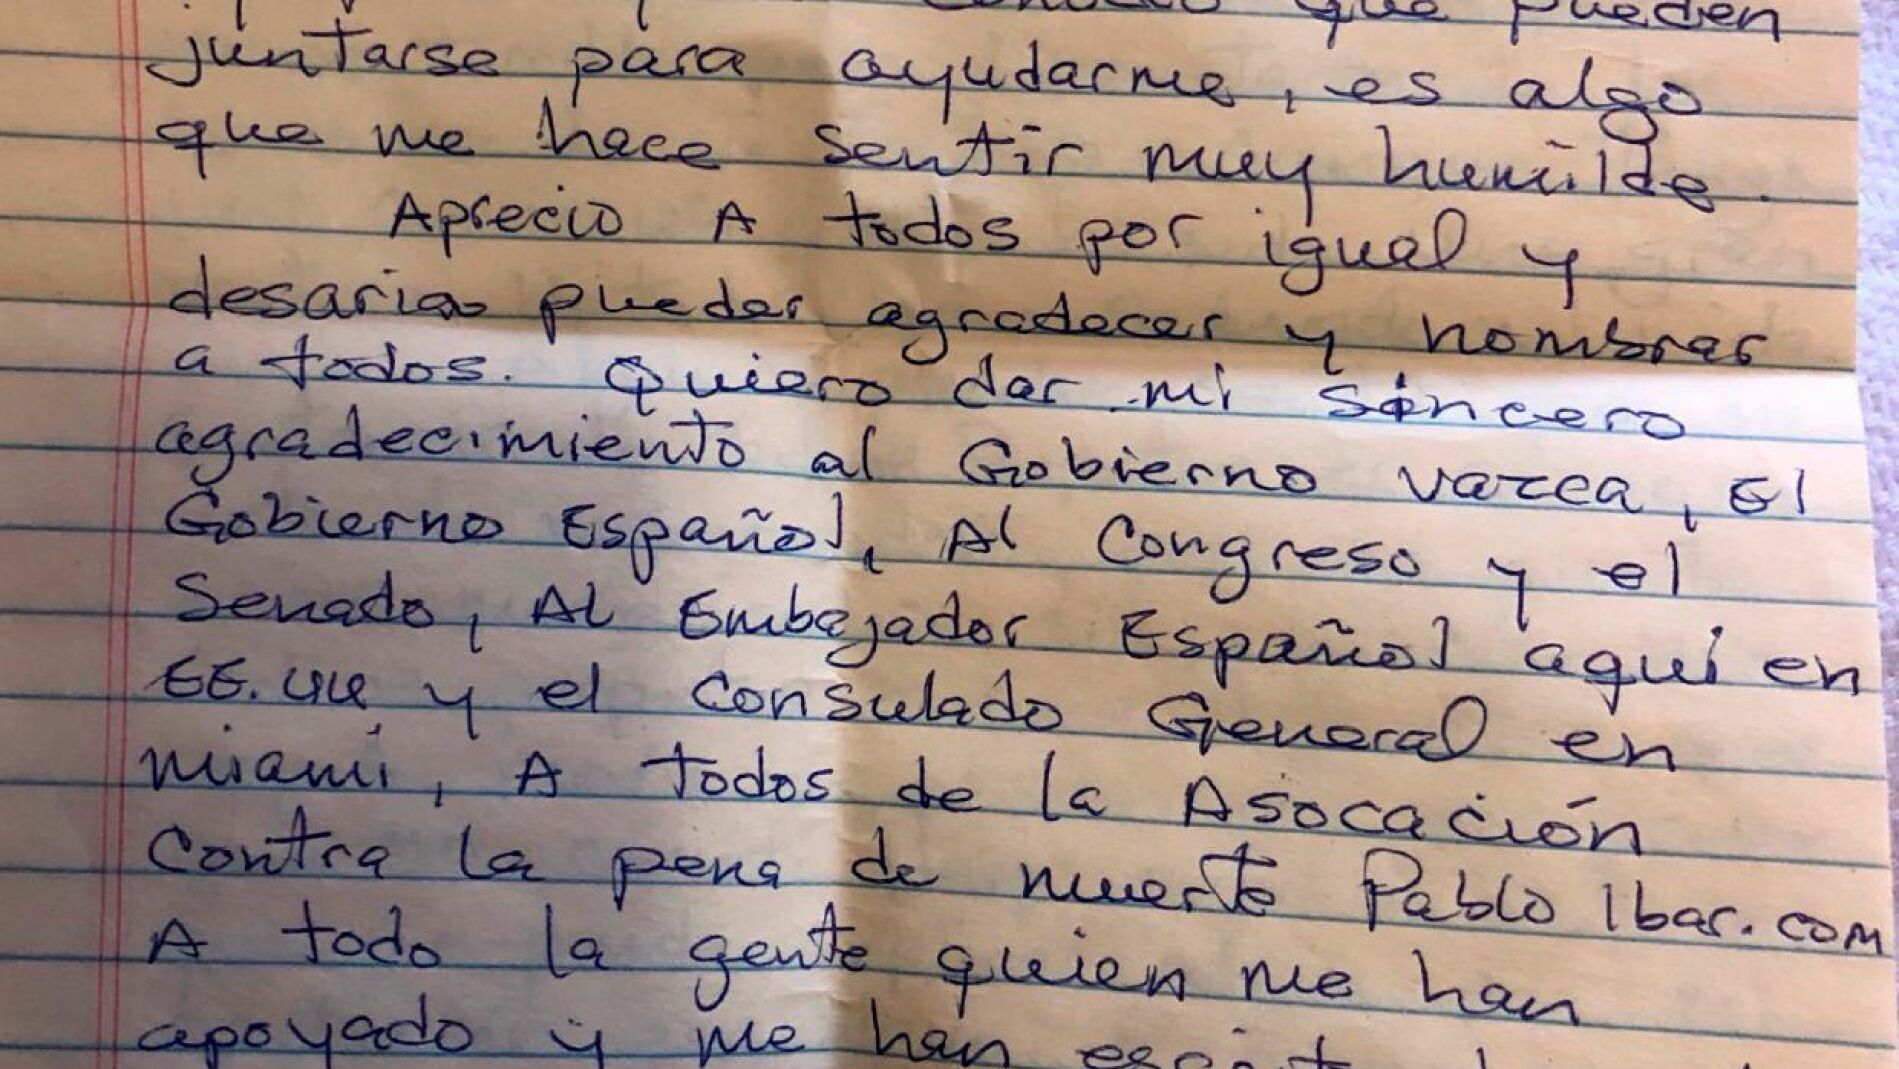 que pueden
juntarse para ayudarme, es algo
que me hace sentir muy humilde.
Aprecio A todos por igual y
desaria pueder agradecer y nombrar
a todos. Quiero dar mi sincero
agradecimiento al Gobierno vazca, El
Gobierno Español, Al Congreso y el
Senado, Al Embajador Español aquí en
EE.UU y el Consulado General en
Miami, A todos de la Asocación
Contra la pena de muerte Pablo Ibar.com
A todo la gente quien me han
apoyado y me han